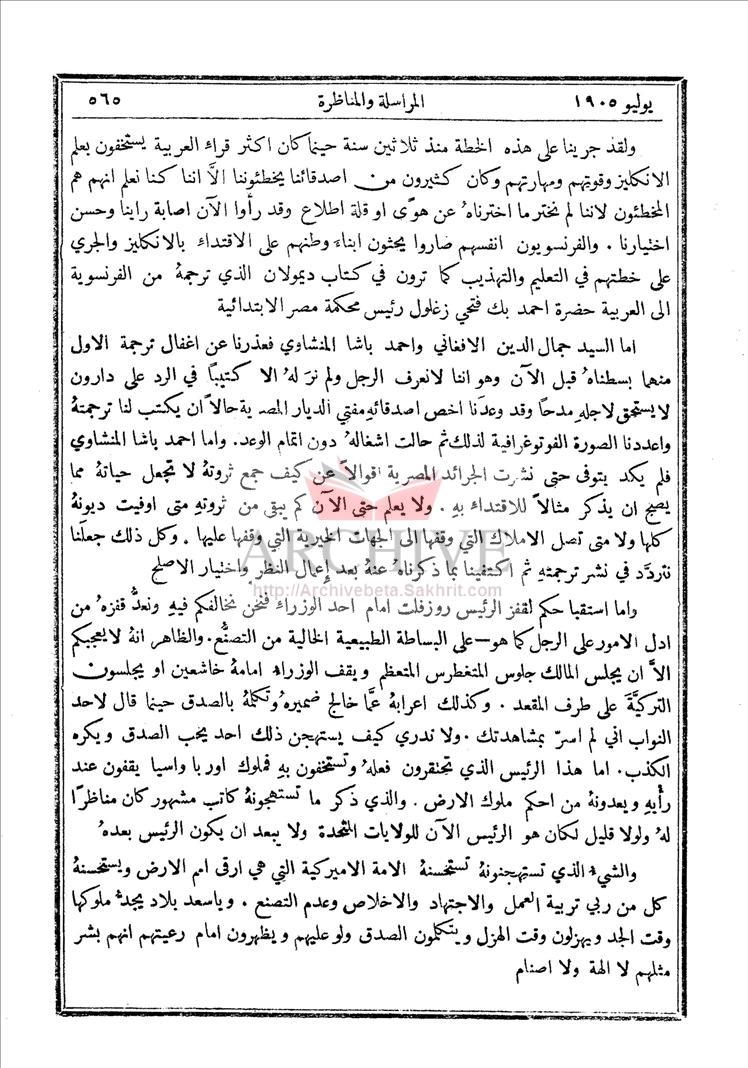 يوليو ١٩٠٥
المراسلة والمناظرة
٥٦٥
ولقد جرينا على هذه الخطة منذ ثلاثين سنة حينما كان اكثر قراء العربية يستخفون بعلم
الانكليز وقوتهم ومهارتهم وكان كثيرون من اصدقائنا يخطئوننا الاَّ اننا كنا نعلم انهم هم
المخطئون لاننا لم نختر ما اخترناهُ عن هوًى او قلة اطلاع وقد رأوا الآن اصابة راينا وحسن
اختيارنا . والفرنسويون انفسهم صاروا يحثون ابناء وطنهم على الاقتداء بالانكليز والجري
على خطتهم في التعليم والتهذيب كما ترون في كتاب ديمولان الذي ترجمهُ من الفرنسوية
الى العربية حضرة احمد بك فتحي زغلول رئيس محكمة مصر الابتدائية
اما السيد جمال الدين الافغاني واحمد باشا المنشاوي فعذرنا عن اغفال ترجمة الاول
منهما بسطناهُ قبل الآن وهو اننا لا نعرف الرجل ولم نرَ لهُ الا كتيبًا في الرد على دارون
لا يستحق لاجلهِ مدحًا وقد وعدَنا اخص اصدقائهِ مفتي الديار المصرية حالاً ان يكتب لنا ترجمتهُ
واعددنا الصورة الفوتوغرافية لذلك ثم حالت اشغالهُ دون اتمام الوعد . واما احمد باشا المنشاوي
فلم يكد يتوفى حتى نشرت الجرائد المصرية اقوالاً عن كيف جمع ثروتهُ لا تجعل حياتهُ مما
يصح ان يذكر مثالاً للاقتداء بهِ . ولا يعلم حتى الآن كم يبقى من ثروتهِ متى اوفيت ديونهُ
كلها ولا متى تصل الاملاك التي وقفها الى الجهات الخيرية التي وقفها عليها . وكل ذلك جعلنا
نتردَّد في نشر ترجمتهِ ثم اكتفينا بما ذكرناهُ عنهُ بعد إِعمال النظر واختيار الاصلح
ARCHIVE
http://Archivebeta.Sakhrit.com
واما استقباحكم لقفز الرئيس روزفلت امام احد الوزراء فنحن نخالفكم فيهِ ونعدُّ قفزهُ من
ادل الامور على الرجل كما هو — على البساطة الطبيعية الخالية من التصنُّع . والظاهر انهُ لا يعجبكم
الاَّ ان يجلس المالك جلوس المتغطرس المتعظم ويقف الوزراء امامهُ خاشعين او يجلسون
التركيَّة على طرف المقعد . وكذلك اعرابهُ عمَّا خالج ضميرهُ وتكلمهُ بالصدق حينما قال لاحد
النواب اني لم اسرَّ بمشاهدتك . ولا ندري كيف يستهجن ذلك احد يحب الصدق ويكره
الكذب . اما هذا الرئيس الذي تحتقرون فعلهُ وتستخفون بهِ فملوك اوربا واسيا يقفون عند
رأيهِ ويعدونهُ من احكم ملوك الارض . والذي ذكر ما تستهجنونهُ كاتب مشهور كان مناظرًا
لهُ ولولا قليل لكان هو الرئيس الآن للولايات المتحدة ولا يبعد ان يكون الرئيس بعدهُ
والشيء الذي تستهجنونهُ تستحسنهُ الامة الاميركية التي هي ارقى امم الارض ويستحسنهُ
كل من ربي تربية العمل والاجتهاد والاخلاص وعدم التصنع . وياسعد بلاد يجدّ ملوكها
وقت الجد ويهزلون وقت الهزل ويتكلمون الصدق ولو عليهم ويظهرون امام رعيتهم انهم بشر
مثلهم لا الهة ولا اصنام